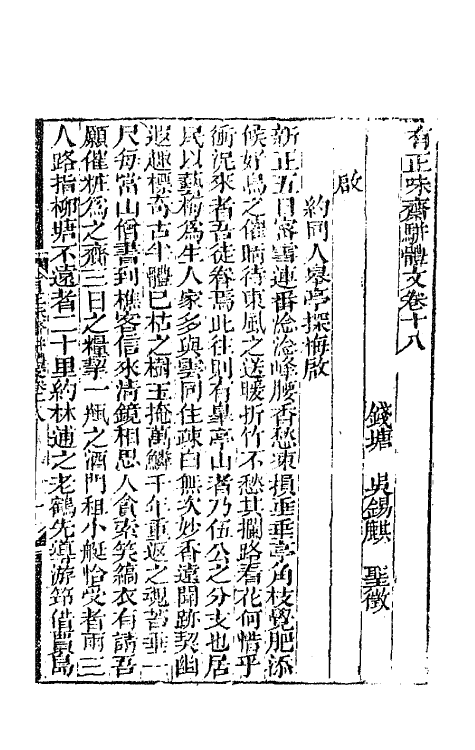 有正味齋駢體文卷十八
錢塘 吳錫麒 聖徵
啟
約同人皋亭探梅啟
新正五日宿雪連番淰淰峰腰香愁凍損垂垂亭角枝覺肥添
候好鳥之催晴待東風之送暖折竹不愁其攔路看花何惜乎
衝泥來者吾徒眷焉此往則有皋亭山者乃伍公之分支也居
民以藝梅為生人家多與雲同住疎白無次妙香遠聞跡契幽
遐趣標奇古半體已枯之樹玉掩萬鱗千年重返之魂苔垂一
尺每當山僧書到樵客信來清鏡相思人貪索笑縞衣有請吾
願催粧為之齎三日之糧挈一瓻之酒門租小艇恰受者兩三
人路指柳塘不遠者二十里約林逋之老鶴先導游筇借鳥